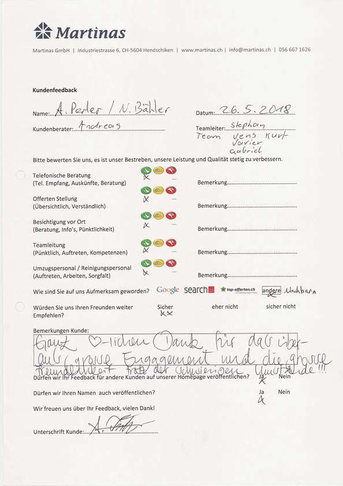 Martinas
Martinas GmbH | Industriestrasse 6, CH-5604 Hendschiken | www.martinas.ch | info@martinas.ch | 056 667 1626
Kundenfeedback
Name: A. Perler / N. Bähler Datum: 26.5.2018
Kundenberater: Andreas Teamleiter: Stephan
Team Jens Kurt
Xavier
Gabriel
Bitte bewerten Sie uns, es ist unser Bestreben, unsere Leistung und Qualität stetig zu verbessern.
Telefonische Beratung
(Tel. Empfang, Auskünfte, Beratung) Bemerkung
Offerten Stellung
(Übersichtlich, Verständlich) Bemerkung
Besichtigung vor Ort
(Beratung, Info's, Pünktlichkeit) Bemerkung
Teamleitung
(Pünktlich, Auftreten, Kompetenzen) Bemerkung
Umzugspersonal / Reinigungspersonal
(Auftreten, Arbeiten, Sorgfalt) Bemerkung
Wie sind Sie auf uns Aufmerksam geworden? Google search top-offerten.ch andere
Würden Sie uns Ihren Freunden weiter Sicher eher nicht sicher nicht
Empfehlen? XX
Bemerkungen Kunde:
Ganz ♡-lichen Dank für das über-
aus grosse Engagement und die grosse
Freundlichkeit trotz der schwierigen Umstände!!!
Dürfen wir Ihr Feedback für andere Kunden auf unserer Homepage veröffentlichen? Ja Nein
Dürfen wir Ihren Namen auch veröffentlichen? Ja Nein
Wir freuen uns über Ihr Feedback, vielen Dank!
Unterschrift Kunde: